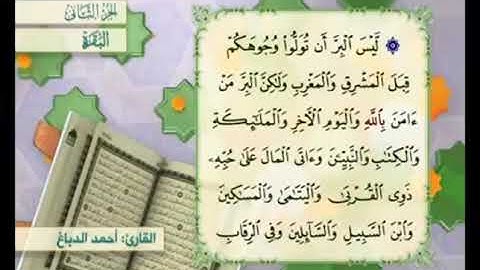 الجزء الثاني
البقرة
۞ لَّيْسَ ٱلْبِرَّ أَن تُوَلُّوا۟ وُجُوهَكُمْ
قِبَلَ ٱلْمَشْرِقِ وَٱلْمَغْرِبِ وَلَٰكِنَّ ٱلْبِرَّ مَنْ
ءَامَنَ بِٱللَّهِ وَٱلْيَوْمِ ٱلْآخِرِ وَٱلْمَلَٰٓئِكَةِ
وَٱلْكِتَٰبِ وَٱلنَّبِيِّۦنَ وَءَاتَى ٱلْمَالَ عَلَىٰ حُبِّهِۦ
ذَوِى ٱلْقُرْبَىٰ وَٱلْيَتَٰمَىٰ وَٱلْمَسَٰكِينَ
وَٱبْنَ ٱلسَّبِيلِ وَٱلسَّآئِلِينَ وَفِى ٱلرِّقَابِ
القارئ: أحمد الدباغ